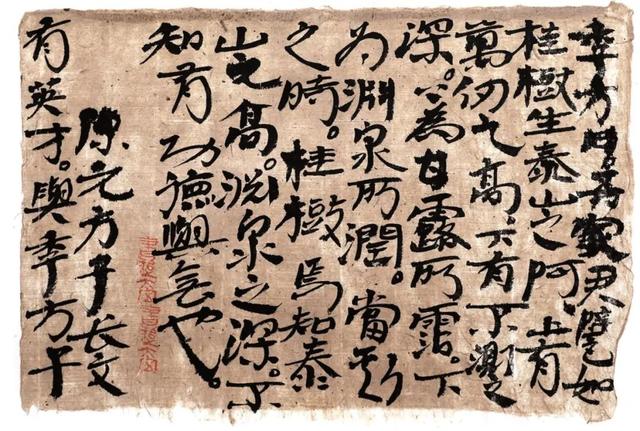 季方曰吾家君譬如
桂樹生泰山之阿、上有
萬仞之高、下有不測之
深。上為甘露所霑。下
為淵泉所潤。當斯
之時。桂樹焉知泰
山之高。淵泉之深。不
知有功德與無也。
陳元方子長文
有英才。與季方子